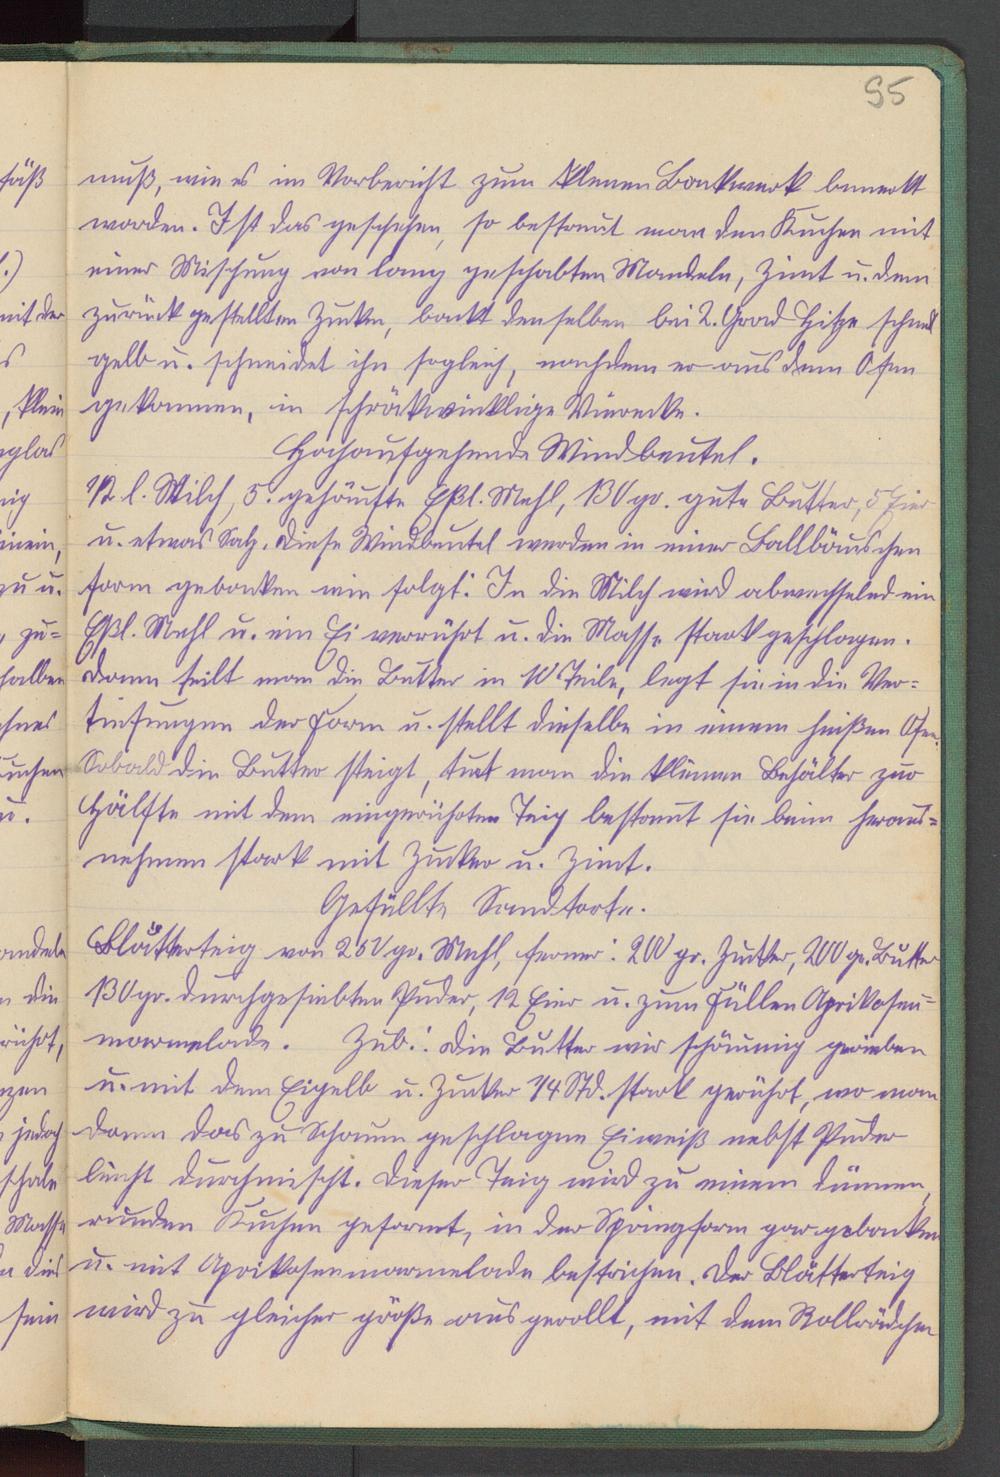 95
muß, wie es im Vorbericht zum kleinen Backwerk bemerkt
worden. Ist das geschehen, so bestreut man den Kuchen mit
einer Mischung von lang geschabten Mandeln, Zimt u. dem
zurück gestellten Zucker, backt denselben bei 2. Grad Hitze schnell
gelb u. schneidet ihn sogleich, nachdem er aus dem Ofen
gekommen, in schräkwinklige Vierecke.
Hochaufgehende Windbeutel.
1/2 l. Milch, 5. gehäufte Eßl. Mehl, 130 gr. gute Butter, 5 Eier
u. etwas Salz. Diese Windbeutel werden in einer Ballbäuschen
form gebacken wie folgt: In die Milch wird abwechselnd ein
Eßl. Mehl u. ein Ei verrührt u. die Masse stark geschlagen.
Dann teilt man die Butter in 10 Teile, legt sie in die Ver=
tiefungen der Form u. stellt dieselbe in einem heißen Ofen.
Sobald die Butter steigt, tut man die kleinen Behälter zur
Hälfte mit dem eingerührten Teig bestreut sie beim heraus=
nehmen stark mit Zucker u. Zimt.
Gefüllte Sandtorte.
Blätterteig von 250 gr. Mehl, ferner: 200 gr. Zucker, 200 gr. Butter
130 gr. durchgesiebten Puder, 12 Eier u. zum Füllen Aprikosen=
marmelade. Zub.: Die Butter wir schäumig gerieben
u. mit dem Eigelb u. Zucker 1/4 Std. stark gerührt, wo man
dann das zu Schaum geschlagene Eiweiß nebst Puder
leicht durchmischt. Dieser Teig wird zu einem dünnen,
runden Kuchen geformt, in der Springform gar gebacken
u. mit Aprikosenmarmelade bestrichen. Der Blätterteig
wird zu gleicher größe ausgerollt, mit dem Rollrädchen